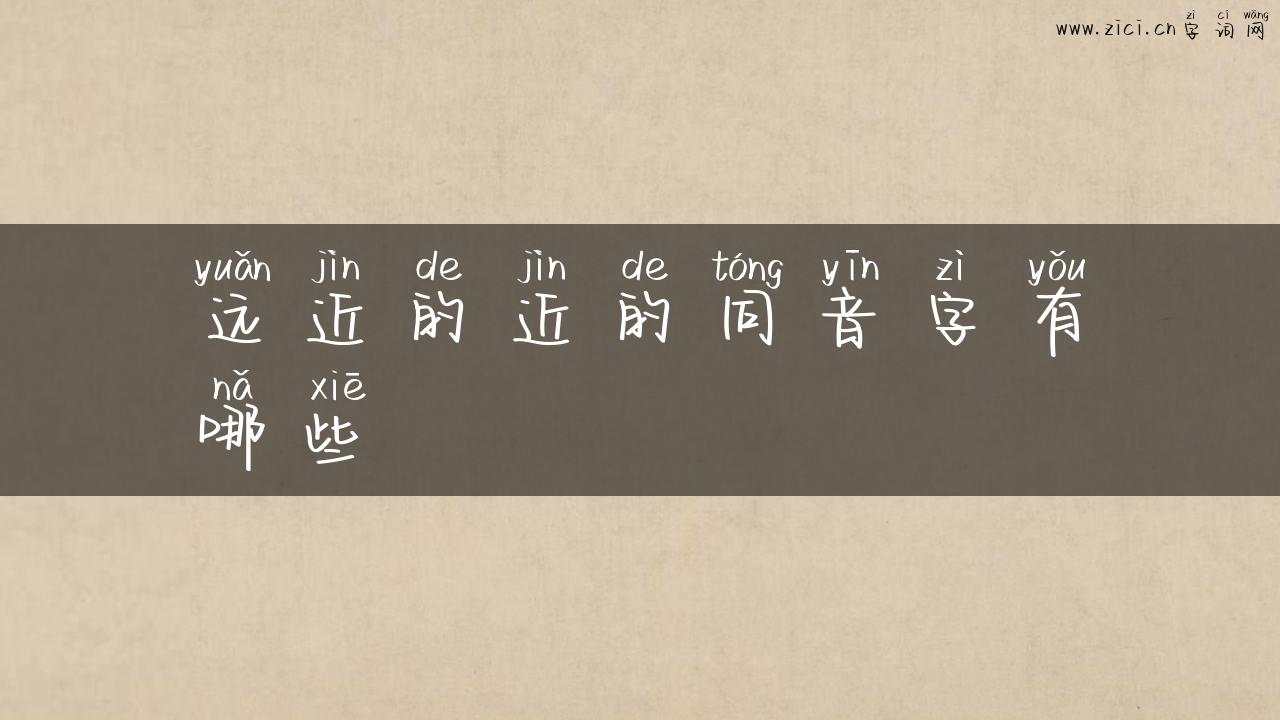 zì cí wǎng
www.zici.cn 字词网
yuǎn jìn de jìn de tóng yīn zì yǒu
远近的近的同音字有
nǎ xiē
哪些